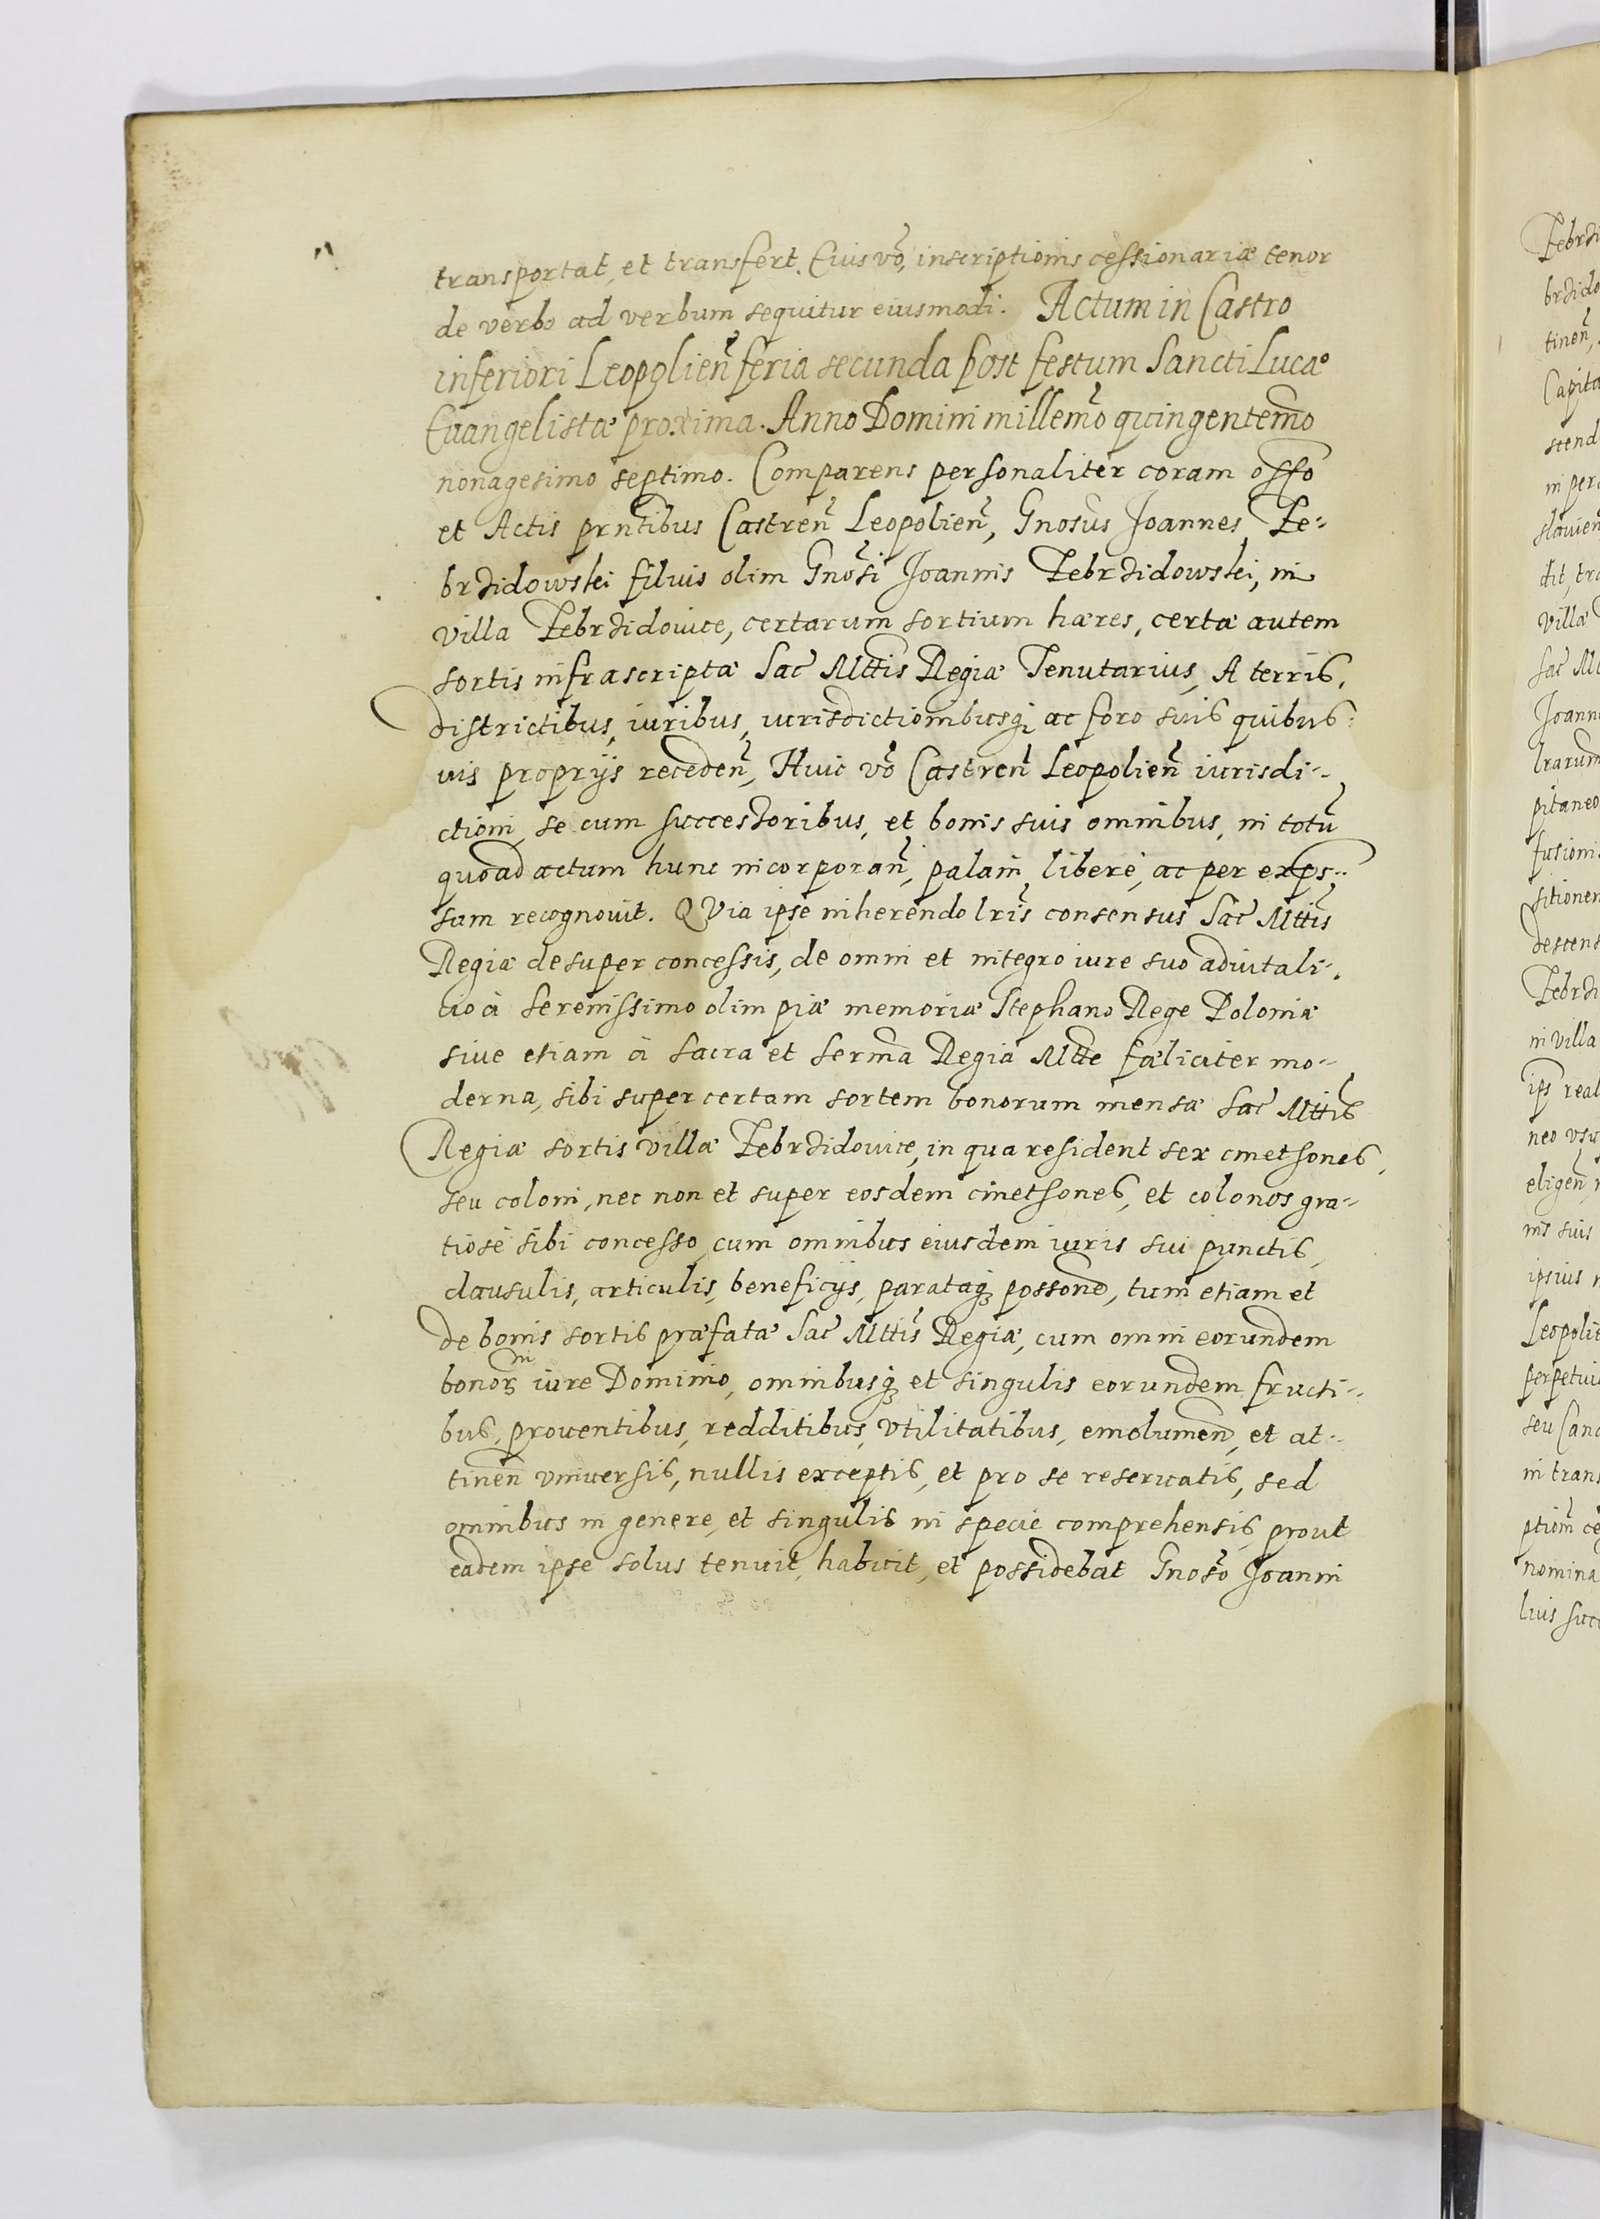 transportat, et transfert. Cuius vo, inscriptionis cessionariæ tenor
de verbo ad verbum sequitur eiusmodi. Actum in Castro
inferiori Leopolien feria secunda post festum Sancti Lucæ
Euangelistæ proxima. Anno Domini millemo quingentemo
nonagesimo septimo. Comparens personaliter coram offo
et Actis prntibus Castren Leopolien, Gnosus Joannes Ze-
brzidowski filius olim Gnosi Joannis Zebrzidowski, in
villa Zebrzidouice, certarum sortium hæres, certæ autem
sortis infrascriptæ Sac Mttis Regiæ Tenutarius, A terris,
districtibus, iuribus, iurisdictionibusq ac foro suis quibus-
uis proprijs receden, Huic vo Castren Leopolien iurisdi-
ctioni, se cum successoribus, et bonis suis omnibus, in totu
quoad actum hunc incorporan, palam, liberè, ac per exps-
sum recognouit. QVia ipse inherendo lris consensus Sac Mttis
Regiæ desuper concessis, de omni et integro iure suo aduitali-
tio à Serenissimo olim piæ memoriæ Stephano Rege Poloniæ
siue etiam à sacra et Serma Regia Mtte fæliciter mo-
derna, sibi super certam sortem bonorum mensæ Sac Mttis
Regiæ sortis villæ Zebrzidouice, in qua resident sex cmetsones,
seu coloni, nec non et super eosdem cmetsones, et colonos gra-
tiosè sibi concesso, cum omnibus eiusdem iuris sui punctis,
clausulis, articulis, beneficijs, parataq possone, tum etiam et
de bonis sortis præfatæ Sac Mttis Regiæ, cum omni eorundem
bonorm iure Dominio, omnibusq et singulis eorundem fructi-
bus, prouentibus, redditibus, vtilitatibus, emolumen, et at-
tinen vniuersis, nullis exceptis, et pro se reseruatis, sed
omnibus in genere, et singulis in specie comprehensis, prout
eadem ipse solus tenuit, habuit, et possidebat Gnoso Joanni